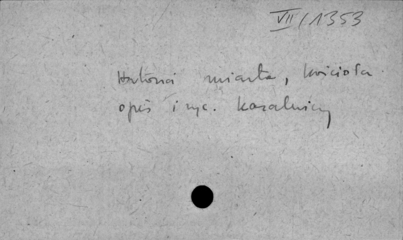 VII/1353
Historia miasta, kościoła
opis i ryc. kazalnicy